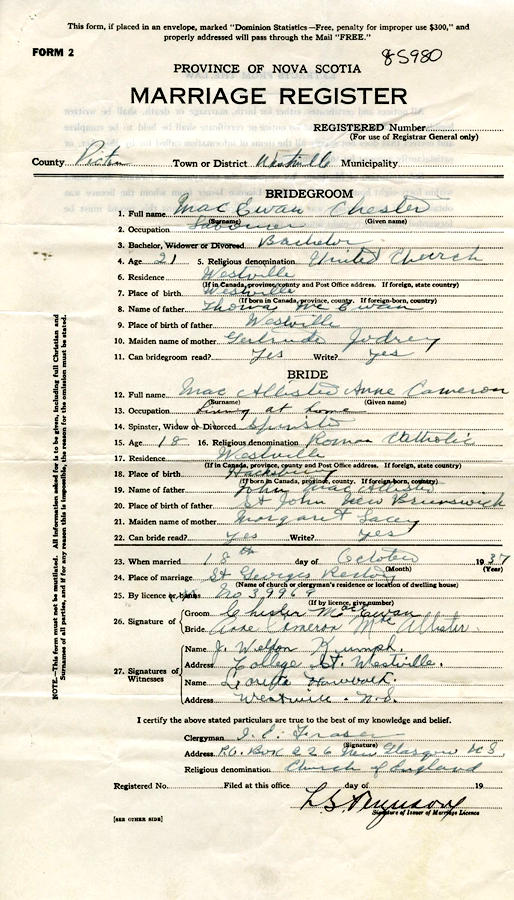 This form, if placed in an envelope, marked "Dominion Statistics—Free, penalty for improper use $300," and
properly addressed will pass through the Mail "FREE."
FORM 2
85980
PROVINCE OF NOVA SCOTIA
MARRIAGE REGISTER
REGISTERED Number
(For use of Registrar General only)
County Pictou Town or District Westville Municipality
BRIDEGROOM
1. Full name MacEwan Chester
(Surname) (Given name)
2. Occupation Labourer
3. Bachelor, Widower or Divorced Bachelor
4. Age 21 5. Religious denomination United Church
6. Residence Westville
(If in Canada, province, county and Post Office address. If foreign, state country)
7. Place of birth Westville
(If born in Canada, province, county. If foreign-born, country)
8. Name of father Thomas McEwan
9. Place of birth of father Westville
10. Maiden name of mother Gertrude Jodrey
11. Can bridegroom read? Yes Write? yes
BRIDE
12. Full name MacAllister Anne Cameron
(Surname) (Given name)
13. Occupation Living at home
14. Spinster, Widow or Divorced Spinster
15. Age 18 16. Religious denomination Roman Catholic
17. Residence Westville
(If in Canada, province, county and Post Office address. If foreign, state country)
18. Place of birth
(If born in Canada, province, county. If foreign-born, country)
19. Name of father John MacAllister
20. Place of birth of father St John New Brunswick
21. Maiden name of mother Margaret Lacey
22. Can bride read? Yes Write? Yes
23. When married 18th day of October 1937
(Month) (Year)
24. Place of marriage St Georges
(Name of church or clergyman's residence or location of dwelling house)
25. By licence or banns No 39969
(If by licence, give number)
26. Signature of Groom Chester MacEwan
Bride Anne Cameron MacAllister
27. Signatures of Witnesses
Name J. Weldon
Address College St. Westville.
Name
Address Westville. N.S.
I certify the above stated particulars are true to the best of my knowledge and belief.
Clergyman J. E. Fraser
(Signature)
Address P.O. Box 226 New Glasgow N.S.
Religious denomination Church of England
Registered No. Filed at this office day of 19
Signature of Issuer of Marriage Licence
[SEE OTHER SIDE]
NOTE.—This form must not be mutilated. All information asked for is to be given, including full Christian and
Surnames of all parties, and if for any reason this is impossible, the reason for the omission must be stated.